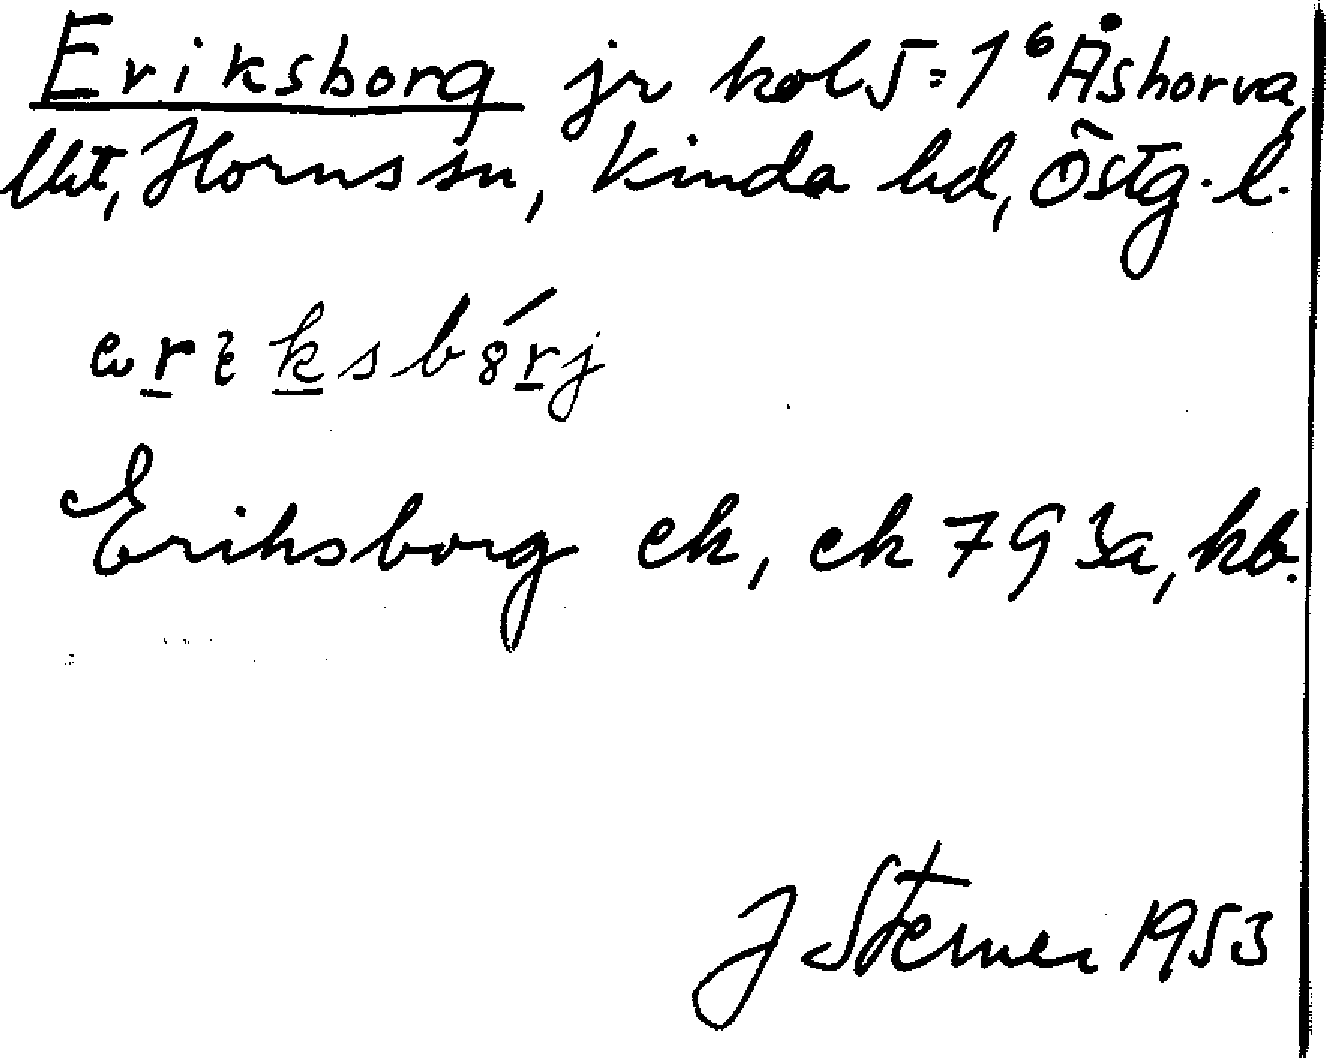 Eriksborg jr kol 5 = 1⁶ Åshorva,
Horns sn, Kinda hd, Östg. l.
Eriksborg ek, ek 793a, kb.
J Sterner 1953